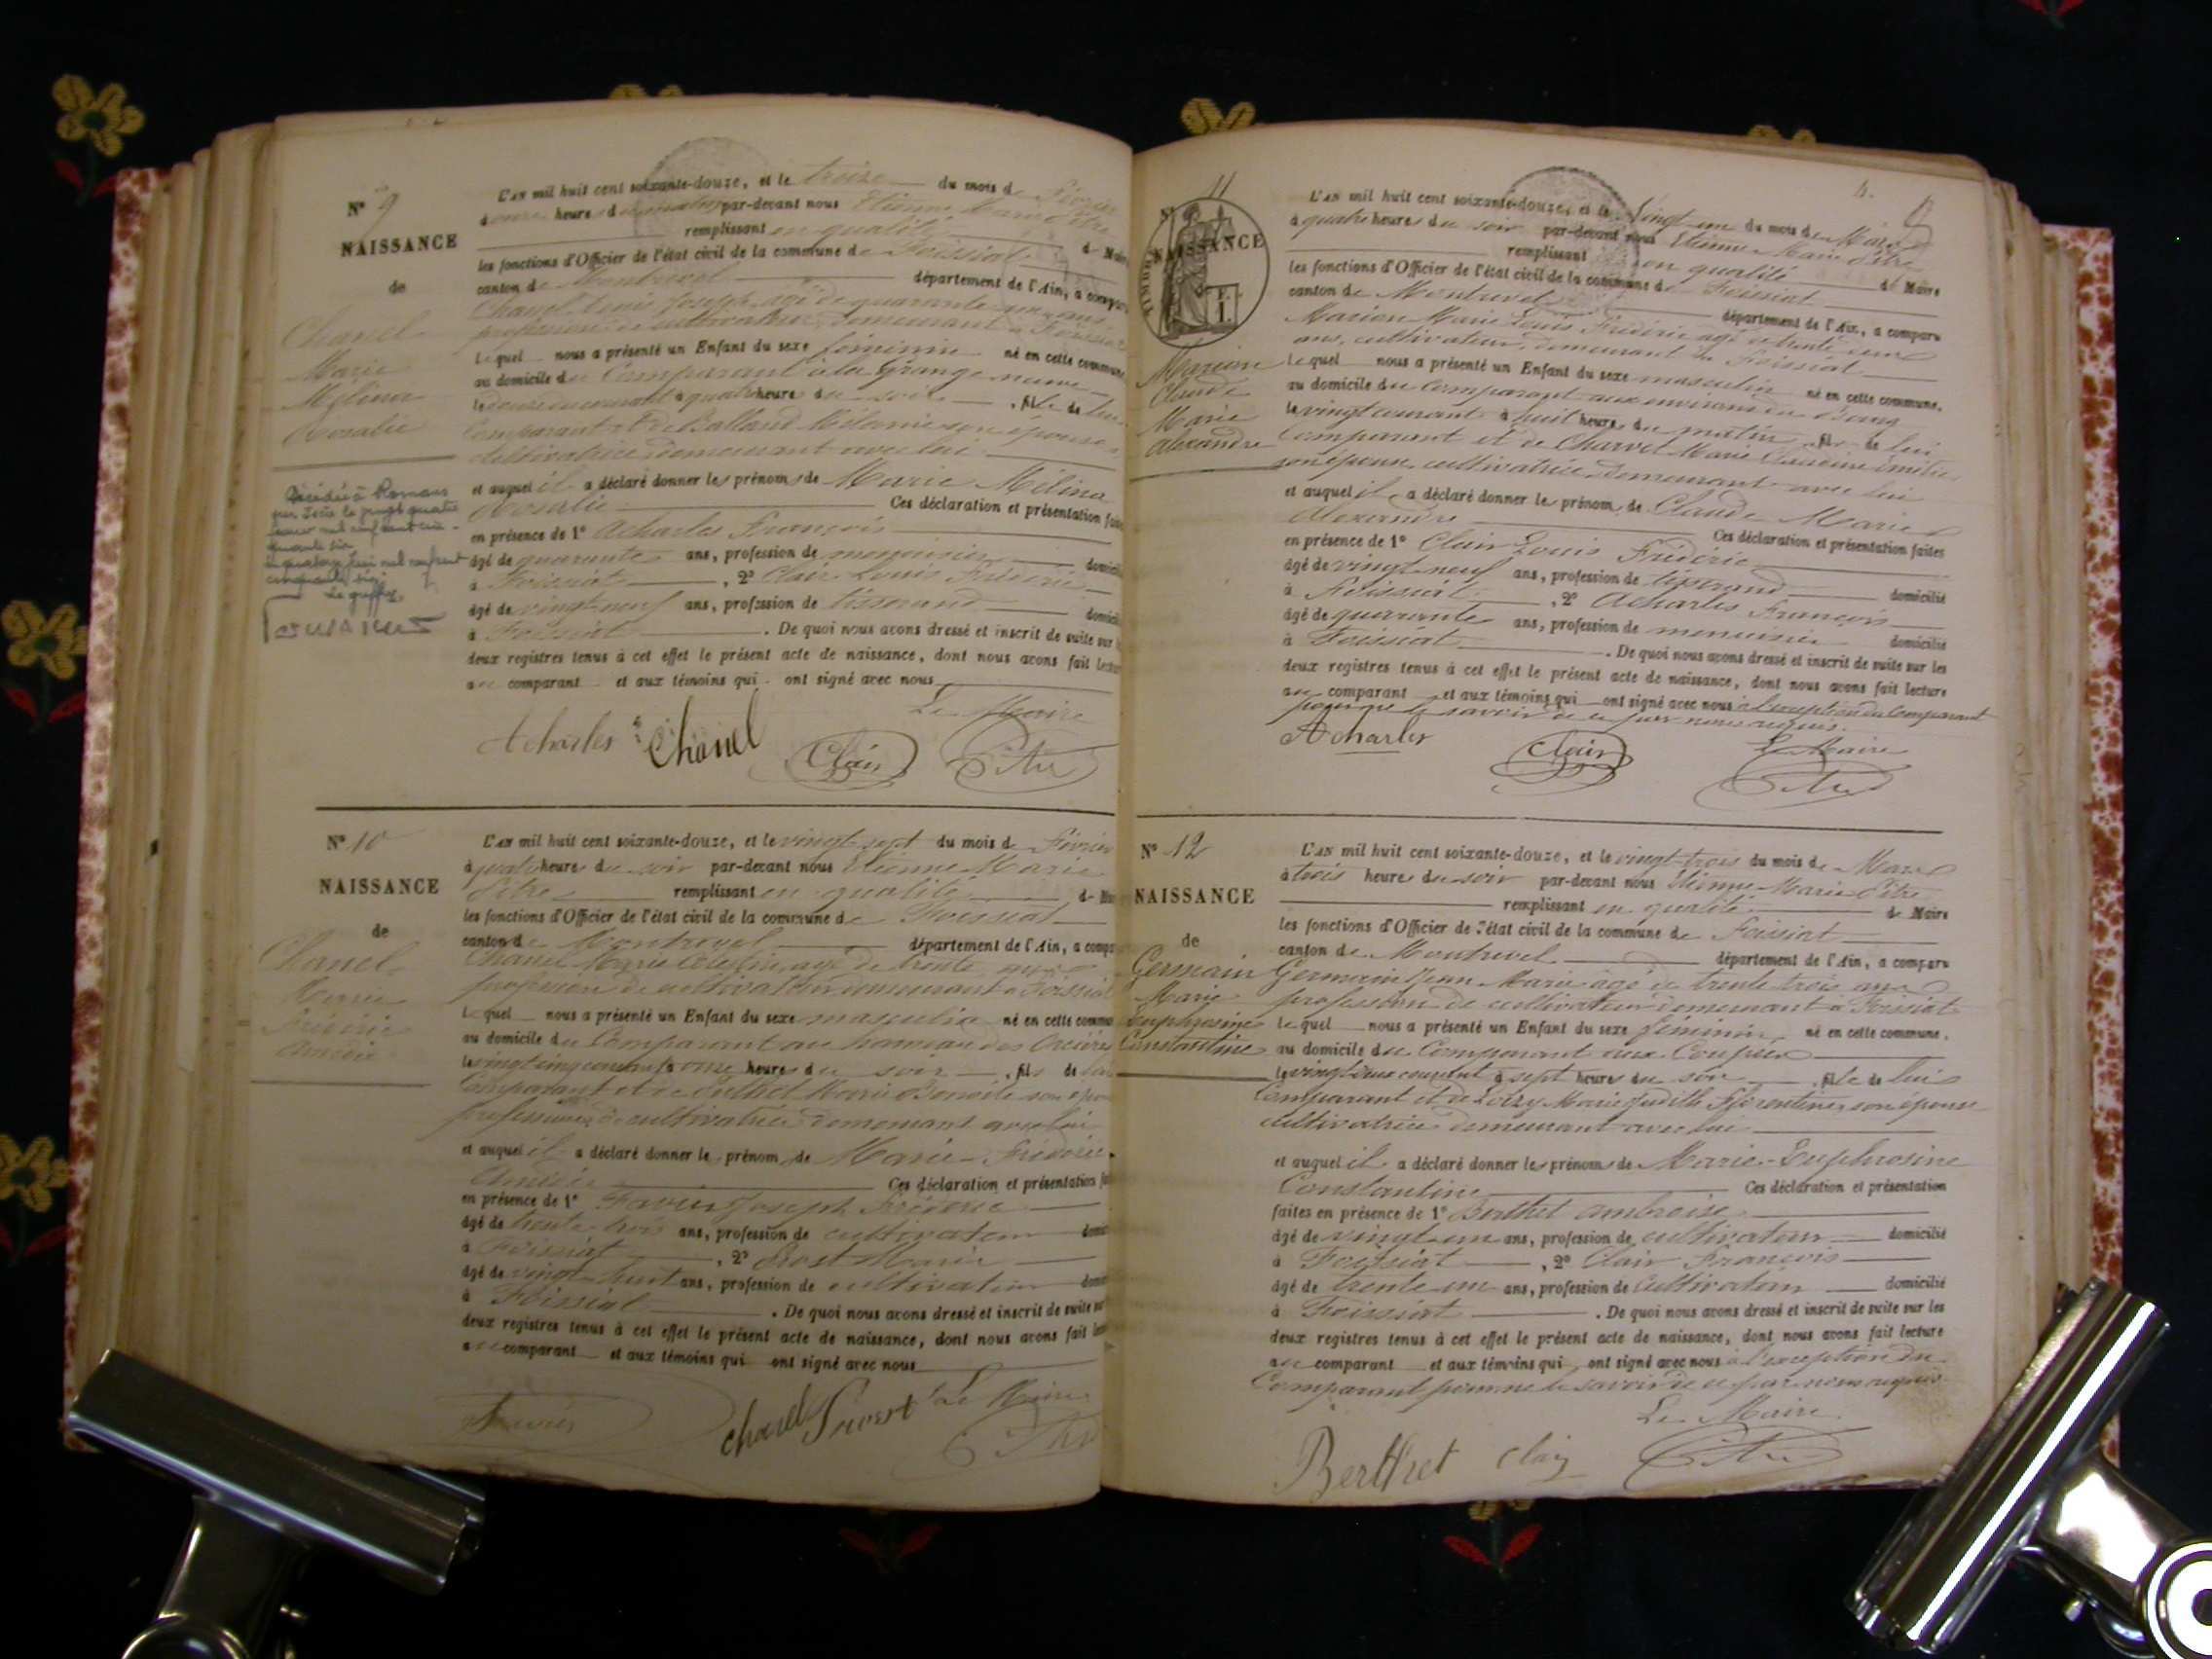 N° 9
NAISSANCE
de
Chanel
Marie
Mélina
Rosalie
Décédée à Romans
sur Isère le vingt quatre
mil neuf cent cin-
quante six
quatorze juin mil neuf cent
cinquante six
Le greffier,
L'AN mil huit cent soixante-douze, et le treize du mois de Février
à onze heures du matin par-devant nous Etienne Marie Pitre
remplissant en qualité de Maire
les fonctions d'Officier de l'état civil de la commune de Foissiat
canton de Montrevel département de l'Ain, a comparu
Chanel Joseph, agé de quarante ans
profession de cultivateur, demeurant à Foissiat
Lequel nous a présenté un Enfant du sexe féminin né en cette commune
au domicile du Comparant à la Grange neuve
le douze du courant à quatre heures du soir, fille de lui
Comparant et de Balland Mélanie son épouse
cultivatrice demeurant avec lui
et auquel il a déclaré donner les prénoms de Marie Mélina
Rosalie Ces déclaration et présentation faites
en présence de 1° Acharles François
âgé de quarante ans, profession de menuisier domicilié
à Foissiat, 2° Clair Louis Frédéric
âgé de vingt neuf ans, profession de tisserand domicilié
à Foissiat. De quoi nous avons dressé et inscrit de suite sur les
deux registres tenus à cet effet le présent acte de naissance, dont nous avons fait lecture
au comparant et aux témoins qui ont signé avec nous
Le Maire
Acharles Chanel Clair Pitre
N° 10
NAISSANCE
de
Chanel
Marie
Frédéric
Amédée
L'AN mil huit cent soixante-douze, et le vingt sept du mois de Février
à quatre heures du soir par-devant nous Etienne Marie
Pitre remplissant en qualité de Maire
les fonctions d'Officier de l'état civil de la commune de Foissiat
canton de Montrevel département de l'Ain, a comparu
Chanel Marie Célestin, agé de trente ans
profession de cultivateur demeurant à Foissiat
Lequel nous a présenté un Enfant du sexe masculin né en cette commune
au domicile du Comparant au hameau des
le vingt cinq courant à onze heures du soir, fils de lui
Comparant et de Marie Benoite son épouse
profession de cultivatrice demeurant avec lui
et auquel il a déclaré donner les prénoms de Marie Frédéric
Amédée Ces déclaration et présentation faites
en présence de 1° Favier Joseph Frédéric
âgé de trente trois ans, profession de cultivateur domicilié
à Foissiat, 2° Marie
âgé de vingt huit ans, profession de cultivateur domicilié
à Foissiat. De quoi nous avons dressé et inscrit de suite sur
deux registres tenus à cet effet le présent acte de naissance, dont nous avons fait lecture
au comparant et aux témoins qui ont signé avec nous
Le Maire
Favier Chanel Pitre
N° 11
NAISSANCE
Marion
Claude
Marie
Alexandre
L'AN mil huit cent soixante-douze, et le vingt un du mois de Mars
à quatre heures du soir par-devant nous Etienne Marie Pitre
remplissant en qualité de Maire
les fonctions d'Officier de l'état civil de la commune de Foissiat
canton de Montrevel département de l'Ain, a comparu
Marion Marie Louis Frédéric agé de trente un
ans, cultivateur, demeurant à Foissiat
Lequel nous a présenté un Enfant du sexe masculin né en cette commune.
au domicile du Comparant aux environs du
le vingt courant à huit heures du matin, fils de lui
Comparant et de Charvet Marie Claudine
son épouse, cultivatrice, demeurant avec lui
et auquel il a déclaré donner les prénoms de Claude Marie
Alexandre Ces déclaration et présentation faites
en présence de 1° Clair Louis Frédéric
âgé de vingt neuf ans, profession de tisserand domicilié
à Foissiat, 2° Acharles François
âgé de quarante ans, profession de menuisier domicilié
à Foissiat. De quoi nous avons dressé et inscrit de suite sur les
deux registres tenus à cet effet le présent acte de naissance, dont nous avons fait lecture
au comparant et aux témoins qui ont signé avec nous à l'exception du Comparant
pour ne le savoir de ce par nous requis.
Le Maire
Acharles Clair Pitre
N° 12
NAISSANCE
de
Germain
Marie
Euphrosine
Constantine
L'AN mil huit cent soixante-douze, et le vingt-trois du mois de Mars
à trois heures du soir par-devant nous Etienne Marie Pitre
remplissant en qualité de Maire
les fonctions d'Officier de l'état civil de la commune de Foissiat
canton de Montrevel département de l'Ain, a comparu
Germain Jean Marie âgé de trente trois ans
profession de cultivateur demeurant à Foissiat
Lequel nous a présenté un Enfant du sexe féminin né en cette commune.
au domicile du Comparant aux
le vingt deux courant à sept heures du soir, fille de lui
Comparant et de Marie Judith Florentine, son épouse
cultivatrice demeurant avec lui
et auquel il a déclaré donner les prénoms de Marie-Euphrosine
Constantine Ces déclaration et présentation
faites en présence de 1° Berthet Ambroise
âgé de vingt un ans, profession de cultivateur domicilié
à Foissiat, 2° Clair François
âgé de trente un ans, profession de Cultivateur domicilié
à Foissiat. De quoi nous avons dressé et inscrit de suite sur les
deux registres tenus à cet effet le présent acte de naissance, dont nous avons fait lecture
au comparant et aux témoins qui ont signé avec nous à l'exception du
Comparant pour ne le savoir de ce par nous requis
Le Maire
Berthet Clair Pitre